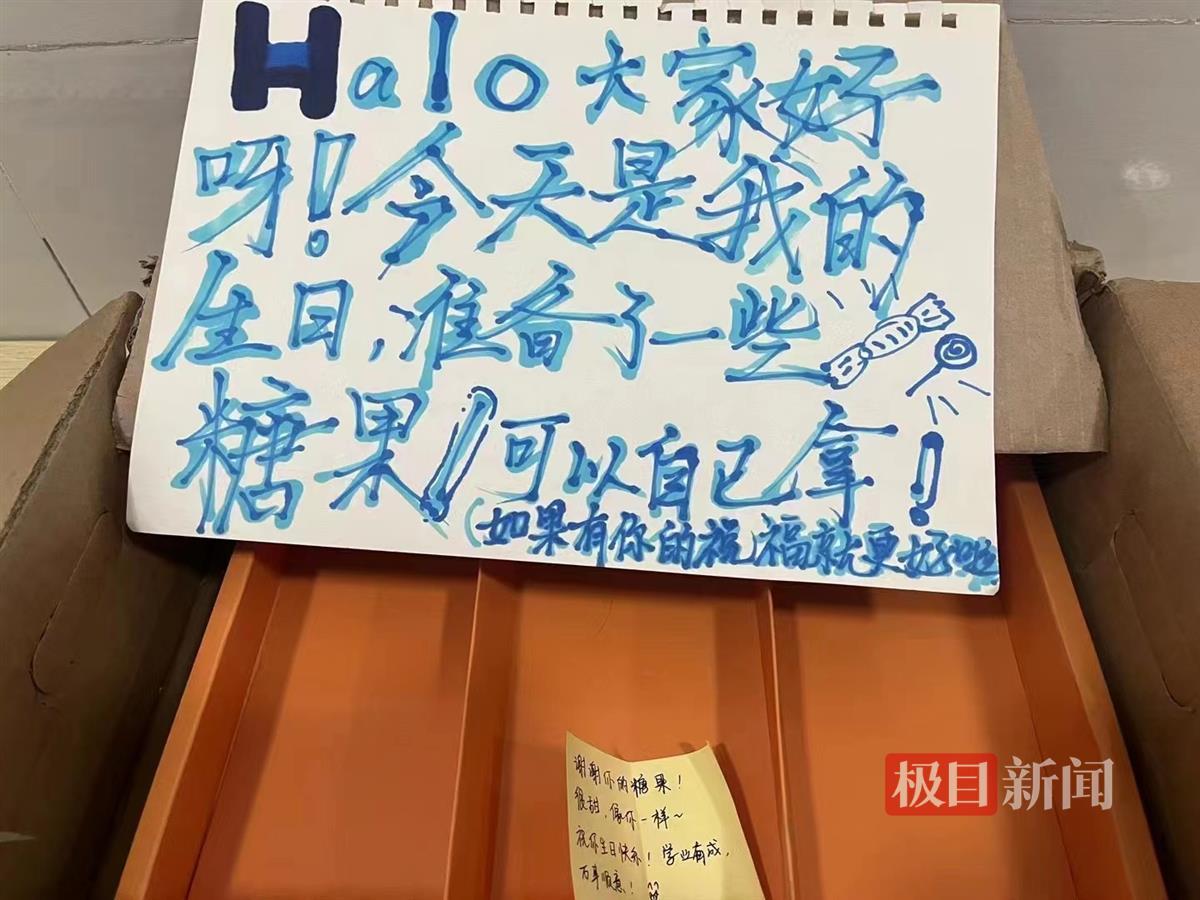 Halo大家好
呀！今天是我的
生日，准备了一些
糖果！可以自己拿！
（如果有你的祝福就更好啦
谢谢你的糖果！
很甜，像你一样～
祝你生日快乐！学业有成，
万事顺意！
极目新闻